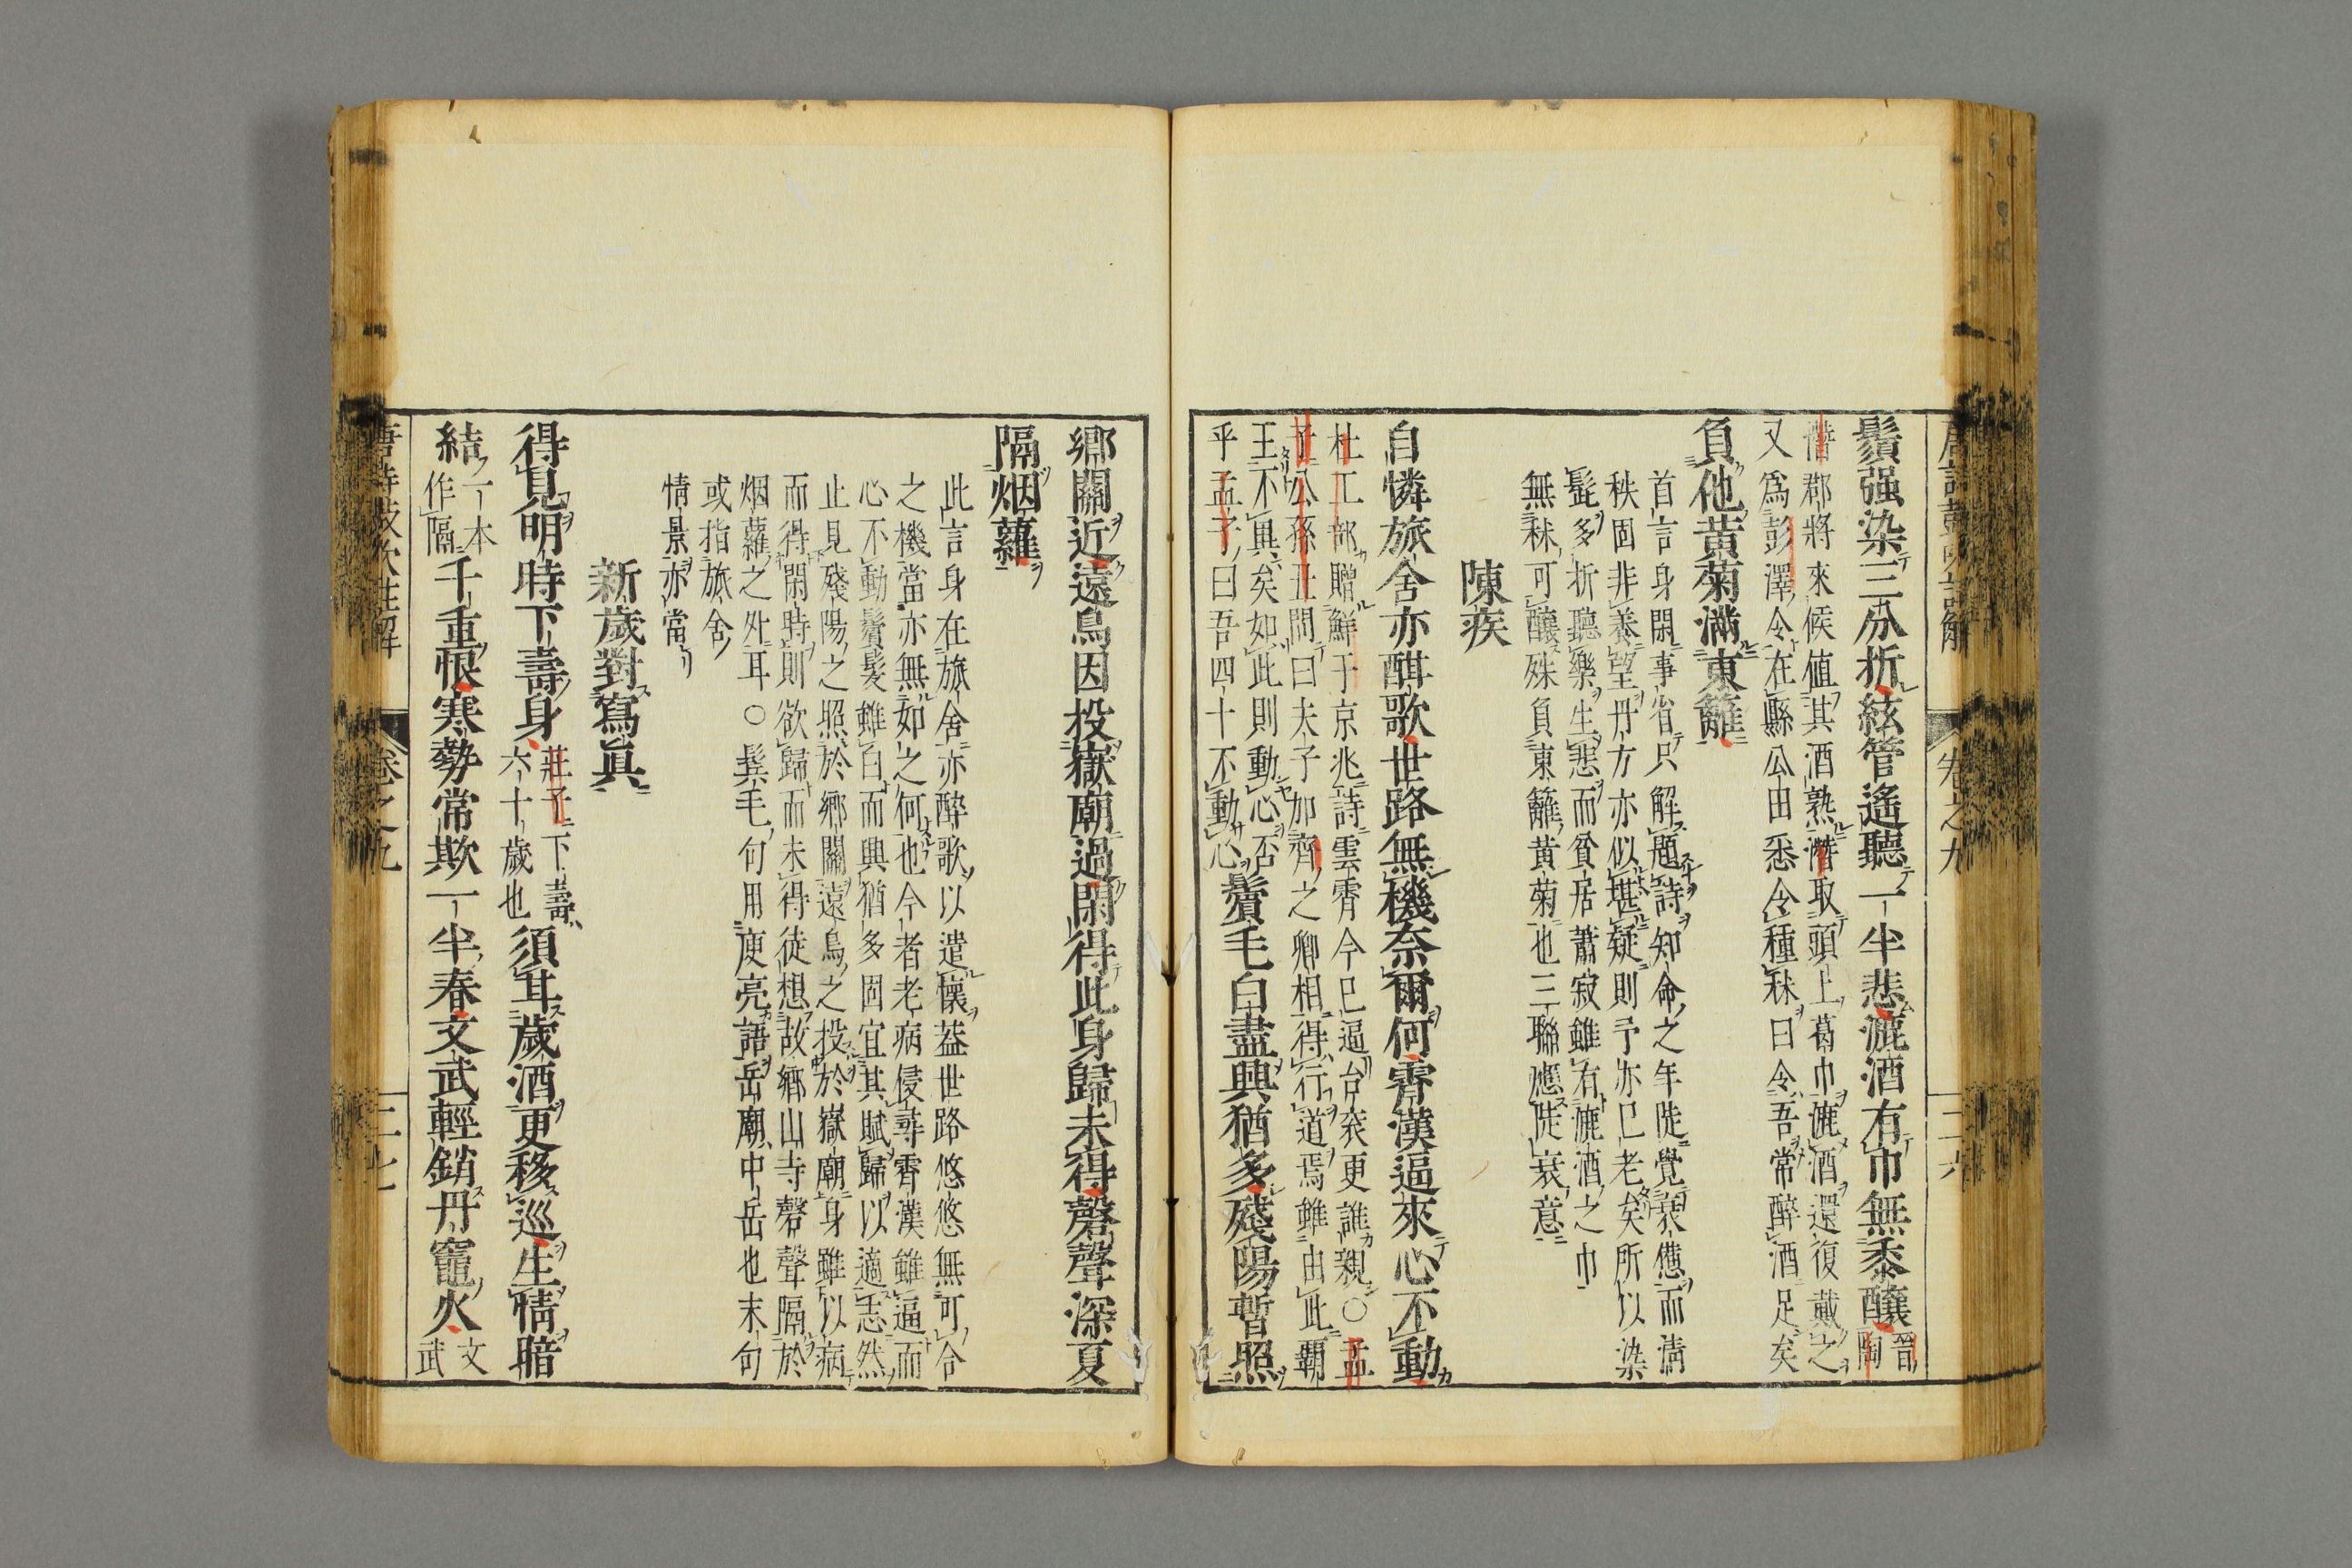 鬚强染三分折絃管遙聽一半悲漉酒有巾無黍釀晉陶
潛郡將來候值其酒熟潛取頭上葛巾漉酒還復戴之
又爲彭澤令在縣公田悉令種秫曰令吾常醉酒足矣
負他黃菊滿東籬
首言身閑事省只解題詩知命之年陡覺衰憊而淸
秧固非養望丹方亦似堪疑則予亦已老矣所以染
髭多折聽樂生悲而貧居蕭寂雖有漉酒之巾
無秫可釀殊負東籬黃菊也三聯應陡衰意
陳疾
自憐旅舍亦酣歌世路無機奈爾何霄漢逼來心不動
杜工部贈鮮于京兆詩雲霄今已逼台衮更誰親○孟
子公孫丑問曰夫子加齊之卿相得行道焉雖由此覇
王不異矣如此則動心否
乎孟子曰吾四十不動心鬢毛白盡興猶多殘陽暫照
鄉關近遠鳥因投嶽廟過閑得此身歸未得磬聲深夏
隔烟蘿
此言身在旅舍亦醉歌以遣懷蓋世路悠悠無可合
之機當亦無如之何也今者老病侵尋霄漢雖逼而
心不動鬢髮雖白而興猶多固宜其賦歸以適志然
止見殘陽之照於鄉關遠鳥之投於嶽廟身雖以病
而得閑時則欲歸而未得徒想故鄉山寺磬聲隔於
烟蘿之外耳○鬂毛句用庾亮語岳廟中岳也末句
或指旅舍
情景亦當
新歲對寫眞
得見明時下壽身莊子下壽六十歲也須耳歲酒更移巡生情暗
結一本作隔千重恨寒勢常欺一半春文武輕銷丹竈火文武
唐詩鼓吹註解
卷之九
三十七